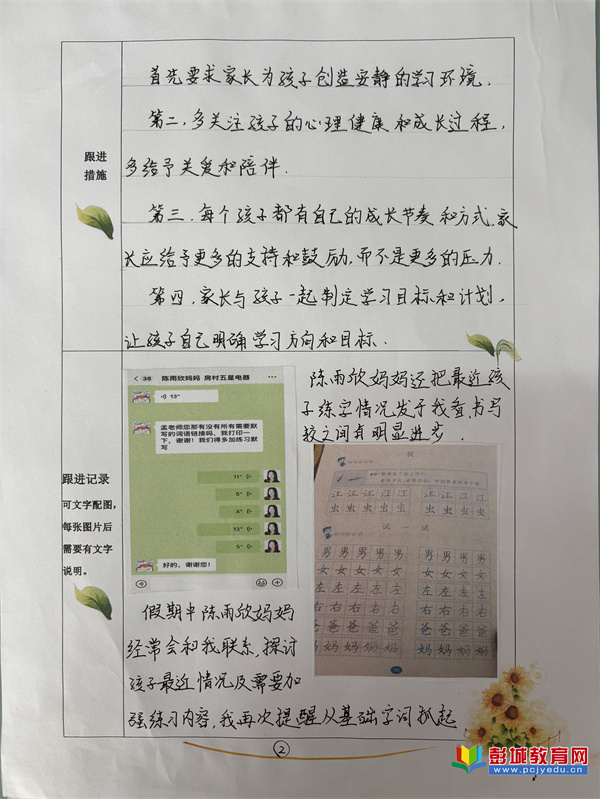 跟进
措施
首先要求家长为孩子创造安静的学习环境.
第二,多关注孩子的心理健康和成长过程,
多给予关爱和陪伴.
第三.每个孩子都有自己的成长节奏和方式,家
长应给予更多的支持和鼓励,而不是更多的压力.
第四,家长与孩子一起制定学习目标和计划,
让孩子自己明确学习方向和目标.
跟进记录
可文字配图,
每张图片后
需要有文字
说明。
36 陈雨欣妈妈 房村五星电器
13"
孟老师您那有没有所有需要默
写的词语链接吗,我打印一
下,谢谢!我们得多加练习默
写
11"
5"
4"
13"
5"
好的,谢谢您!
陈雨欣妈妈还把最近孩
子练字情况发予我看,书写
较之间有明显进步.
江 江 江 江 江 江 江 江
虫 虫 虫 虫 虫 虫 虫 虫
试一试
男 男 男 男 男 男 男 男 男
女 女 女 女 女 女 女 女 女
左 左 左 左 左 左 左 左 左
右 右 右 右 右 右 右 右 右
爸 爸 爸 爸 爸 爸 爸 爸
妈 妈 妈 妈 妈 妈 妈 妈
假期中陈雨欣妈妈
经常会和我联系,探讨
孩子最近情况及需要加
强练习内容,我再次提醒从基础字词抓起
2
彭城教育网
www.pcjyedu.cn